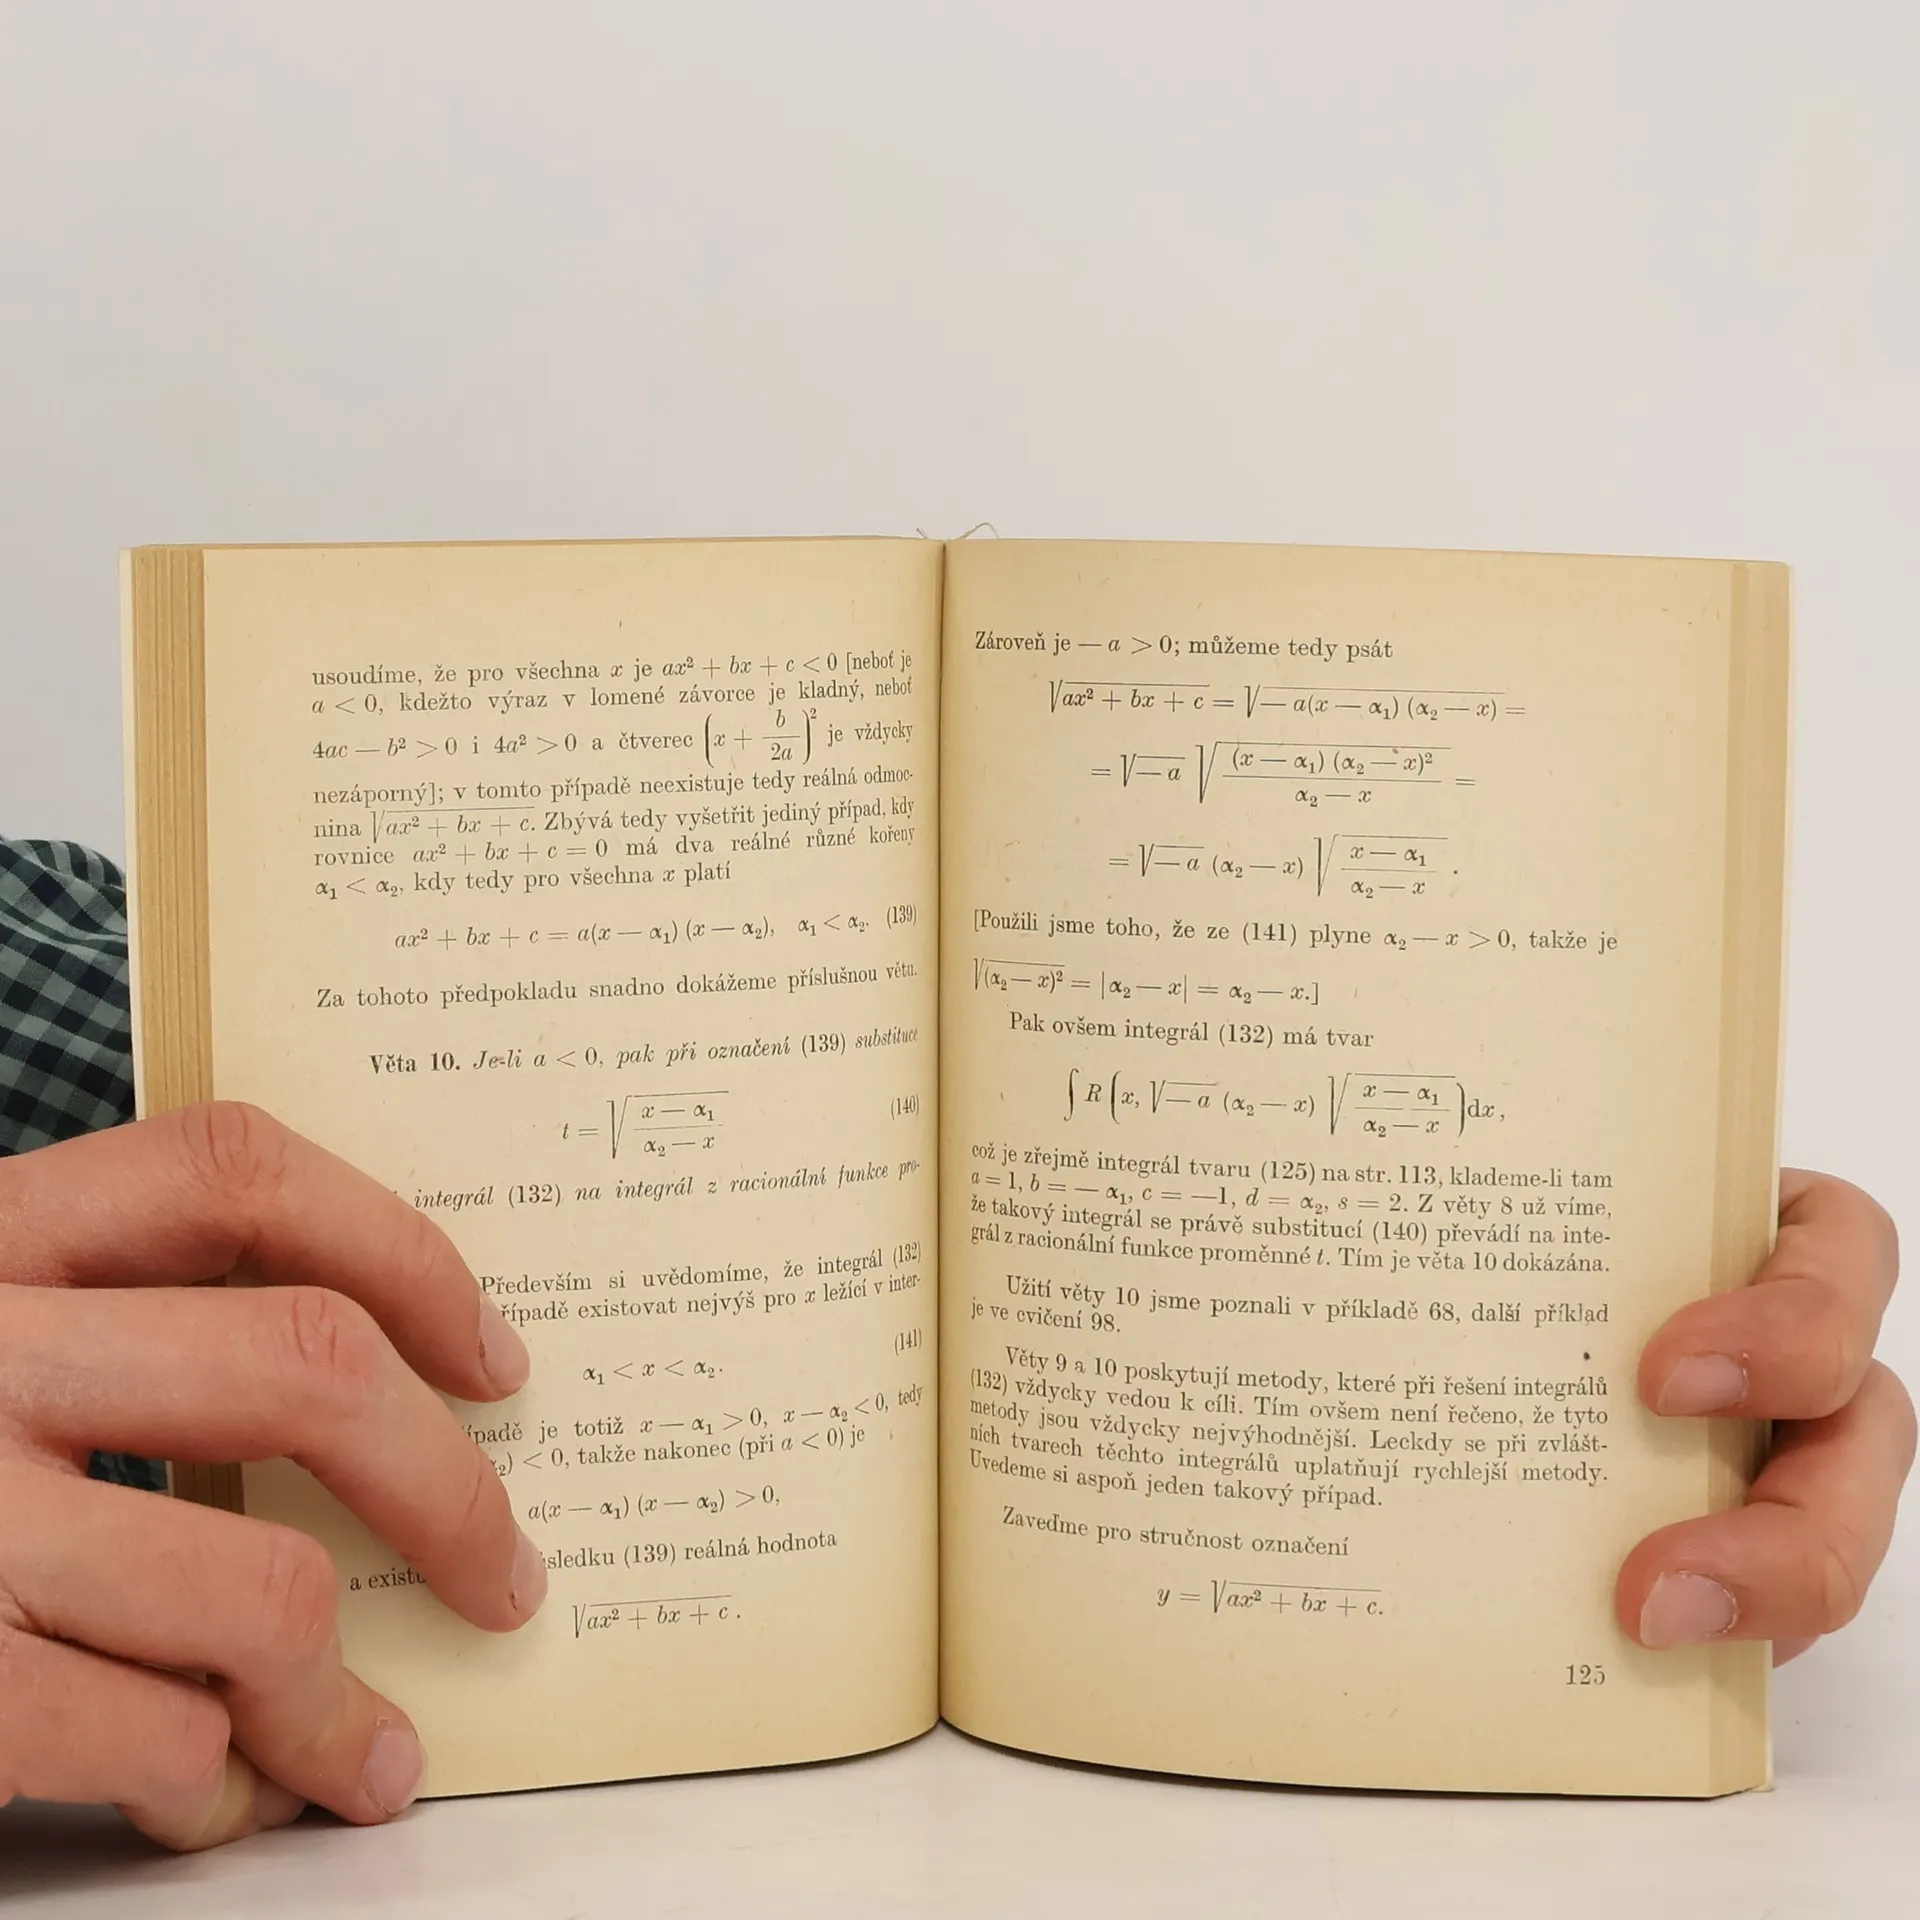 usoudíme, že pro všechna x je ax² + bx + c < 0 [neboť je
a < 0, kdežto výraz v lomené závorce je kladný, neboť
4ac — b² > 0 i 4a² > 0 a čtverec (x + b/2a)² je vždycky
nezáporný]; v tomto případě neexistuje tedy reálná odmoc-
nina √(ax² + bx + c). Zbývá tedy vyšetřit jediný případ, kdy
rovnice ax² + bx + c = 0 má dva reálné různé kořeny
α₁ < α₂, kdy tedy pro všechna x platí
ax² + bx + c = a(x — α₁) (x — α₂), α₁ < α₂. (139)
Za tohoto předpokladu snadno dokážeme příslušnou větu.
Věta 10. Je-li a < 0, pak při označení (139) substituce
t = √((x — α₁)/(α₂ — x)) (140)
integrál (132) na integrál z racionální funkce pro-
Především si uvědomíme, že integrál (132)
existovat nejvýš pro x ležící v inter-
(141)
α₁ < x < α₂.
je totiž x — α₁ > 0, x — α₂ < 0, tedy
₂) < 0, takže nakonec (při a < 0) je
a(x — α₁) (x — α₂) > 0,
a (139) reálná hodnota
√(ax² + bx + c).
Zároveň je — a > 0; můžeme tedy psát
√(ax² + bx + c) = √(— a(x — α₁) (α₂ — x)) =
= √(—a) √((x — α₁) (α₂ — x)²/(α₂ — x)) =
= √(—a) (α₂ — x) √((x — α₁)/(α₂ — x)).
[Použili jsme toho, že ze (141) plyne α₂ — x > 0, takže je
√((α₂ — x)²) = |α₂ — x| = α₂ — x.]
Pak ovšem integrál (132) má tvar
∫ R (x, √(—a) (α₂ — x) √((x — α₁)/(α₂ — x))) dx,
což je zřejmě integrál tvaru (125) na str. 113, klademe-li tam
a = 1, b = — α₁, c = —1, d = α₂, s = 2. Z věty 8 už víme,
že takový integrál se právě substitucí (140) převádí na inte-
grál z racionální funkce proměnné t. Tím je věta 10 dokázána.
Užití věty 10 jsme poznali v příkladě 68, další příklad
je ve cvičení 98.
Věty 9 a 10 poskytují metody, které při řešení integrálů
(132) vždycky vedou k cíli. Tím ovšem není řečeno, že tyto
metody jsou vždycky nejvýhodnější. Leckdy se při zvlášt-
ních tvarech těchto integrálů uplatňují rychlejší metody.
Uvedeme si aspoň jeden takový případ.
Zaveďme pro stručnost označení
y = √(ax² + bx + c).
125